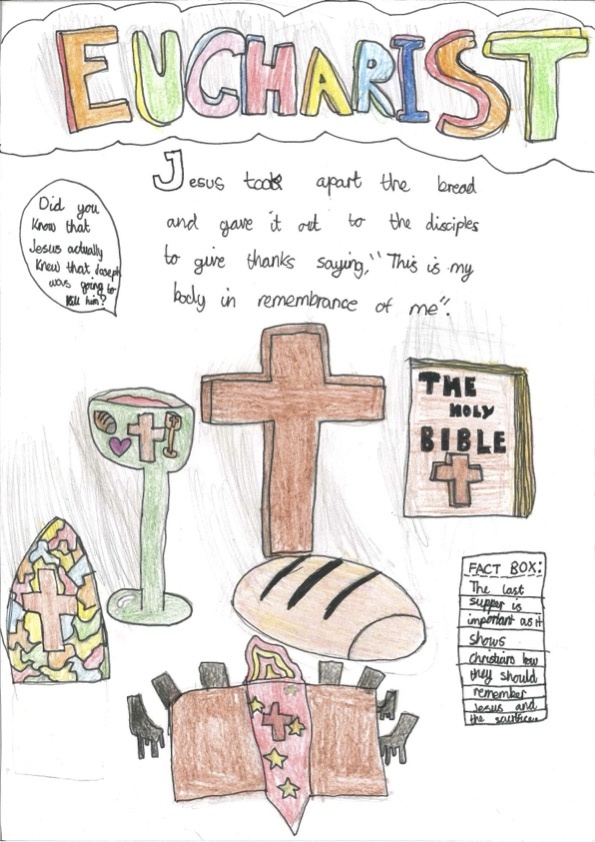 EUCHARIST
Jesus took apart the bread
and gave it out to the disciples
to give thanks saying, "This is my
body in remembrance of me".
Did you
Know that
Jesus actually
Knew that Joseph
was going to
kill him?
THE
HOLY
BIBLE
FACT BOX:
The last
supper is
important as it
shows
christians how
they should
remember
Jesus and
the sacrifices